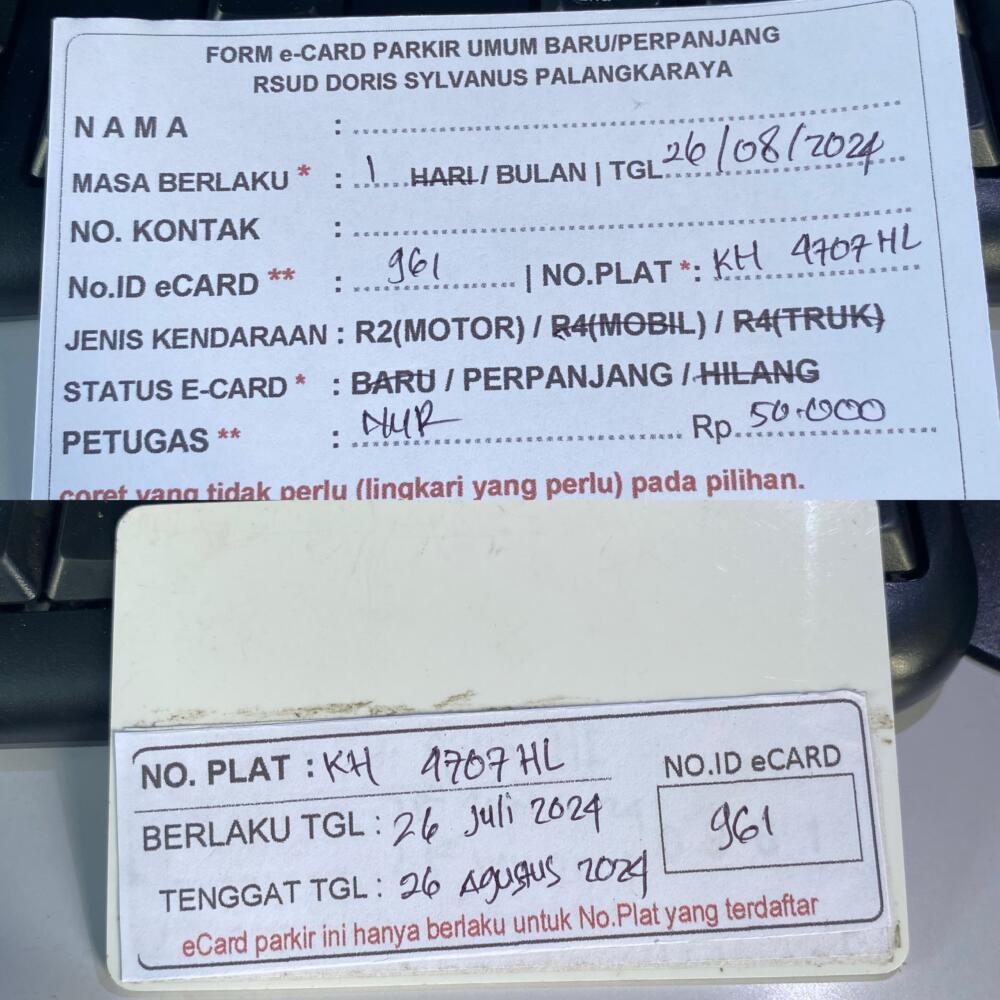 FORM e-CARD PARKIR UMUM BARU/PERPANJANG
RSUD DORIS SYLVANUS PALANGKARAYA
NAMA :
MASA BERLAKU * : 1 HARI / BULAN | TGL 26/08/2024
NO. KONTAK :
No.ID eCARD ** : 961 | NO.PLAT *: KH 4707 HL
JENIS KENDARAAN : R2(MOTOR) / R4(MOBIL) / R4(TRUK)
STATUS E-CARD * : BARU / PERPANJANG / HILANG
PETUGAS ** : NUR Rp 50.000
coret yang tidak perlu (lingkari yang perlu) pada pilihan.
NO. PLAT : KH 4707 HL
NO.ID eCARD
BERLAKU TGL : 26 Juli 2024
961
TENGGAT TGL : 26 Agustus 2024
eCard parkir ini hanya berlaku untuk No.Plat yang terdaftar